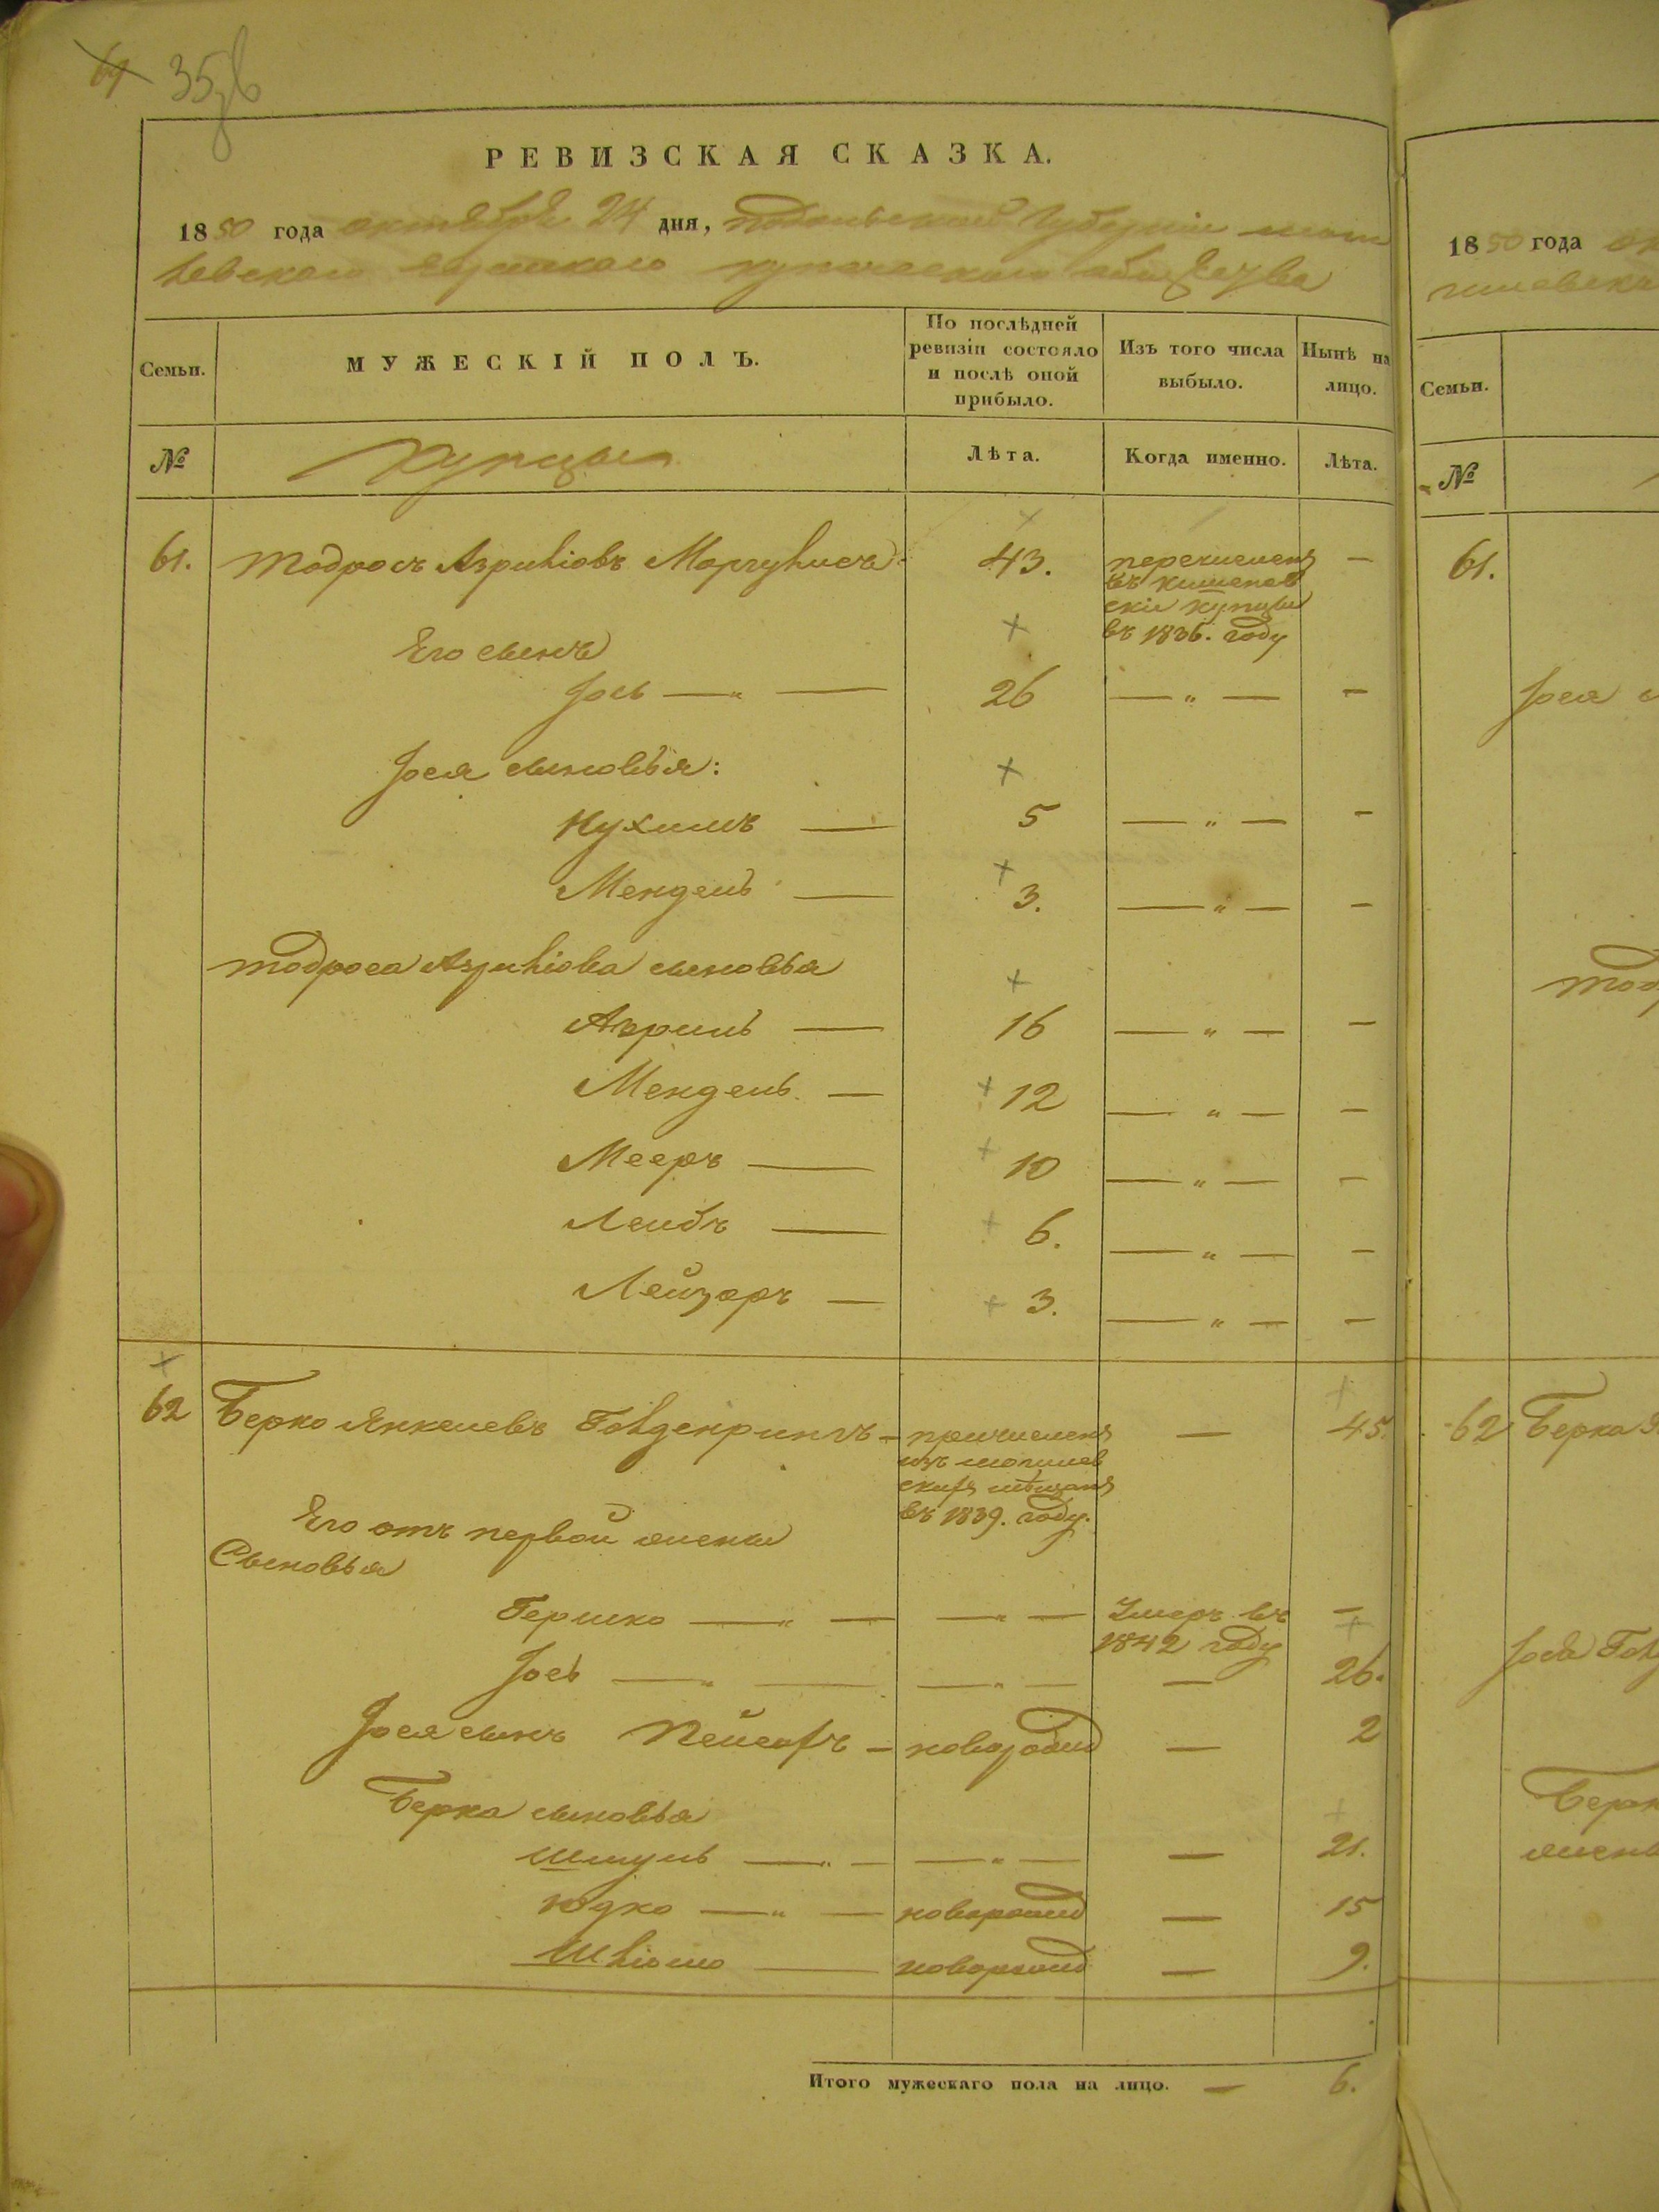 61 35об
РЕВИЗСКАЯ СКАЗКА.
1850 года октября 24 дня, подольской губерніи моги
левского еврейского купеческого общества
Семьи.
МУЖЕСКІЙ ПОЛЪ.
По послѣдней
ревизіи состояло
и послѣ оной
прибыло.
Изъ того числа
выбыло.
Нынѣ на
лицо.
№ Купцы Лѣта. Когда именно. Лѣта.
61. Тодросъ Азриліовъ Маргулисъ 43. перечисленъ —
въ кишенев
скіи купцы
въ 1836. году
Его сынъ
Іось — „ — 26 — „ — —
Іося сыновья:
Нухимъ — 5 — „ — —
Мендель — 3. — „ — —
Тодроса Азриліова сыновья
Азриль — 16 — „ — —
Мендель — 12 — „ — —
Мееръ — 10 — „ — —
Леибъ — 6. — „ — —
Лейзоръ — 3. — „ — —
62 Берко Янкелевъ Голденринъ — причисленъ — 45.
изъ могилев
скихъ мѣщанъ
въ 1839. году.
Его отъ первой жены
Сыновья
Гершко — „ — — „ — Умеръ въ —
1842 году
Іось — „ — — „ — — 26.
Іося сынъ Пейсахъ — новорожд — 2
Берка сыновья
Шмуль — „ — — „ — — 21.
Юдко — „ — новорожд — 15
Шліомо — новорожд — 9.
Итого мужескаго пола на лицо. — 6.
61.
62
1850 года
Семьи.
№